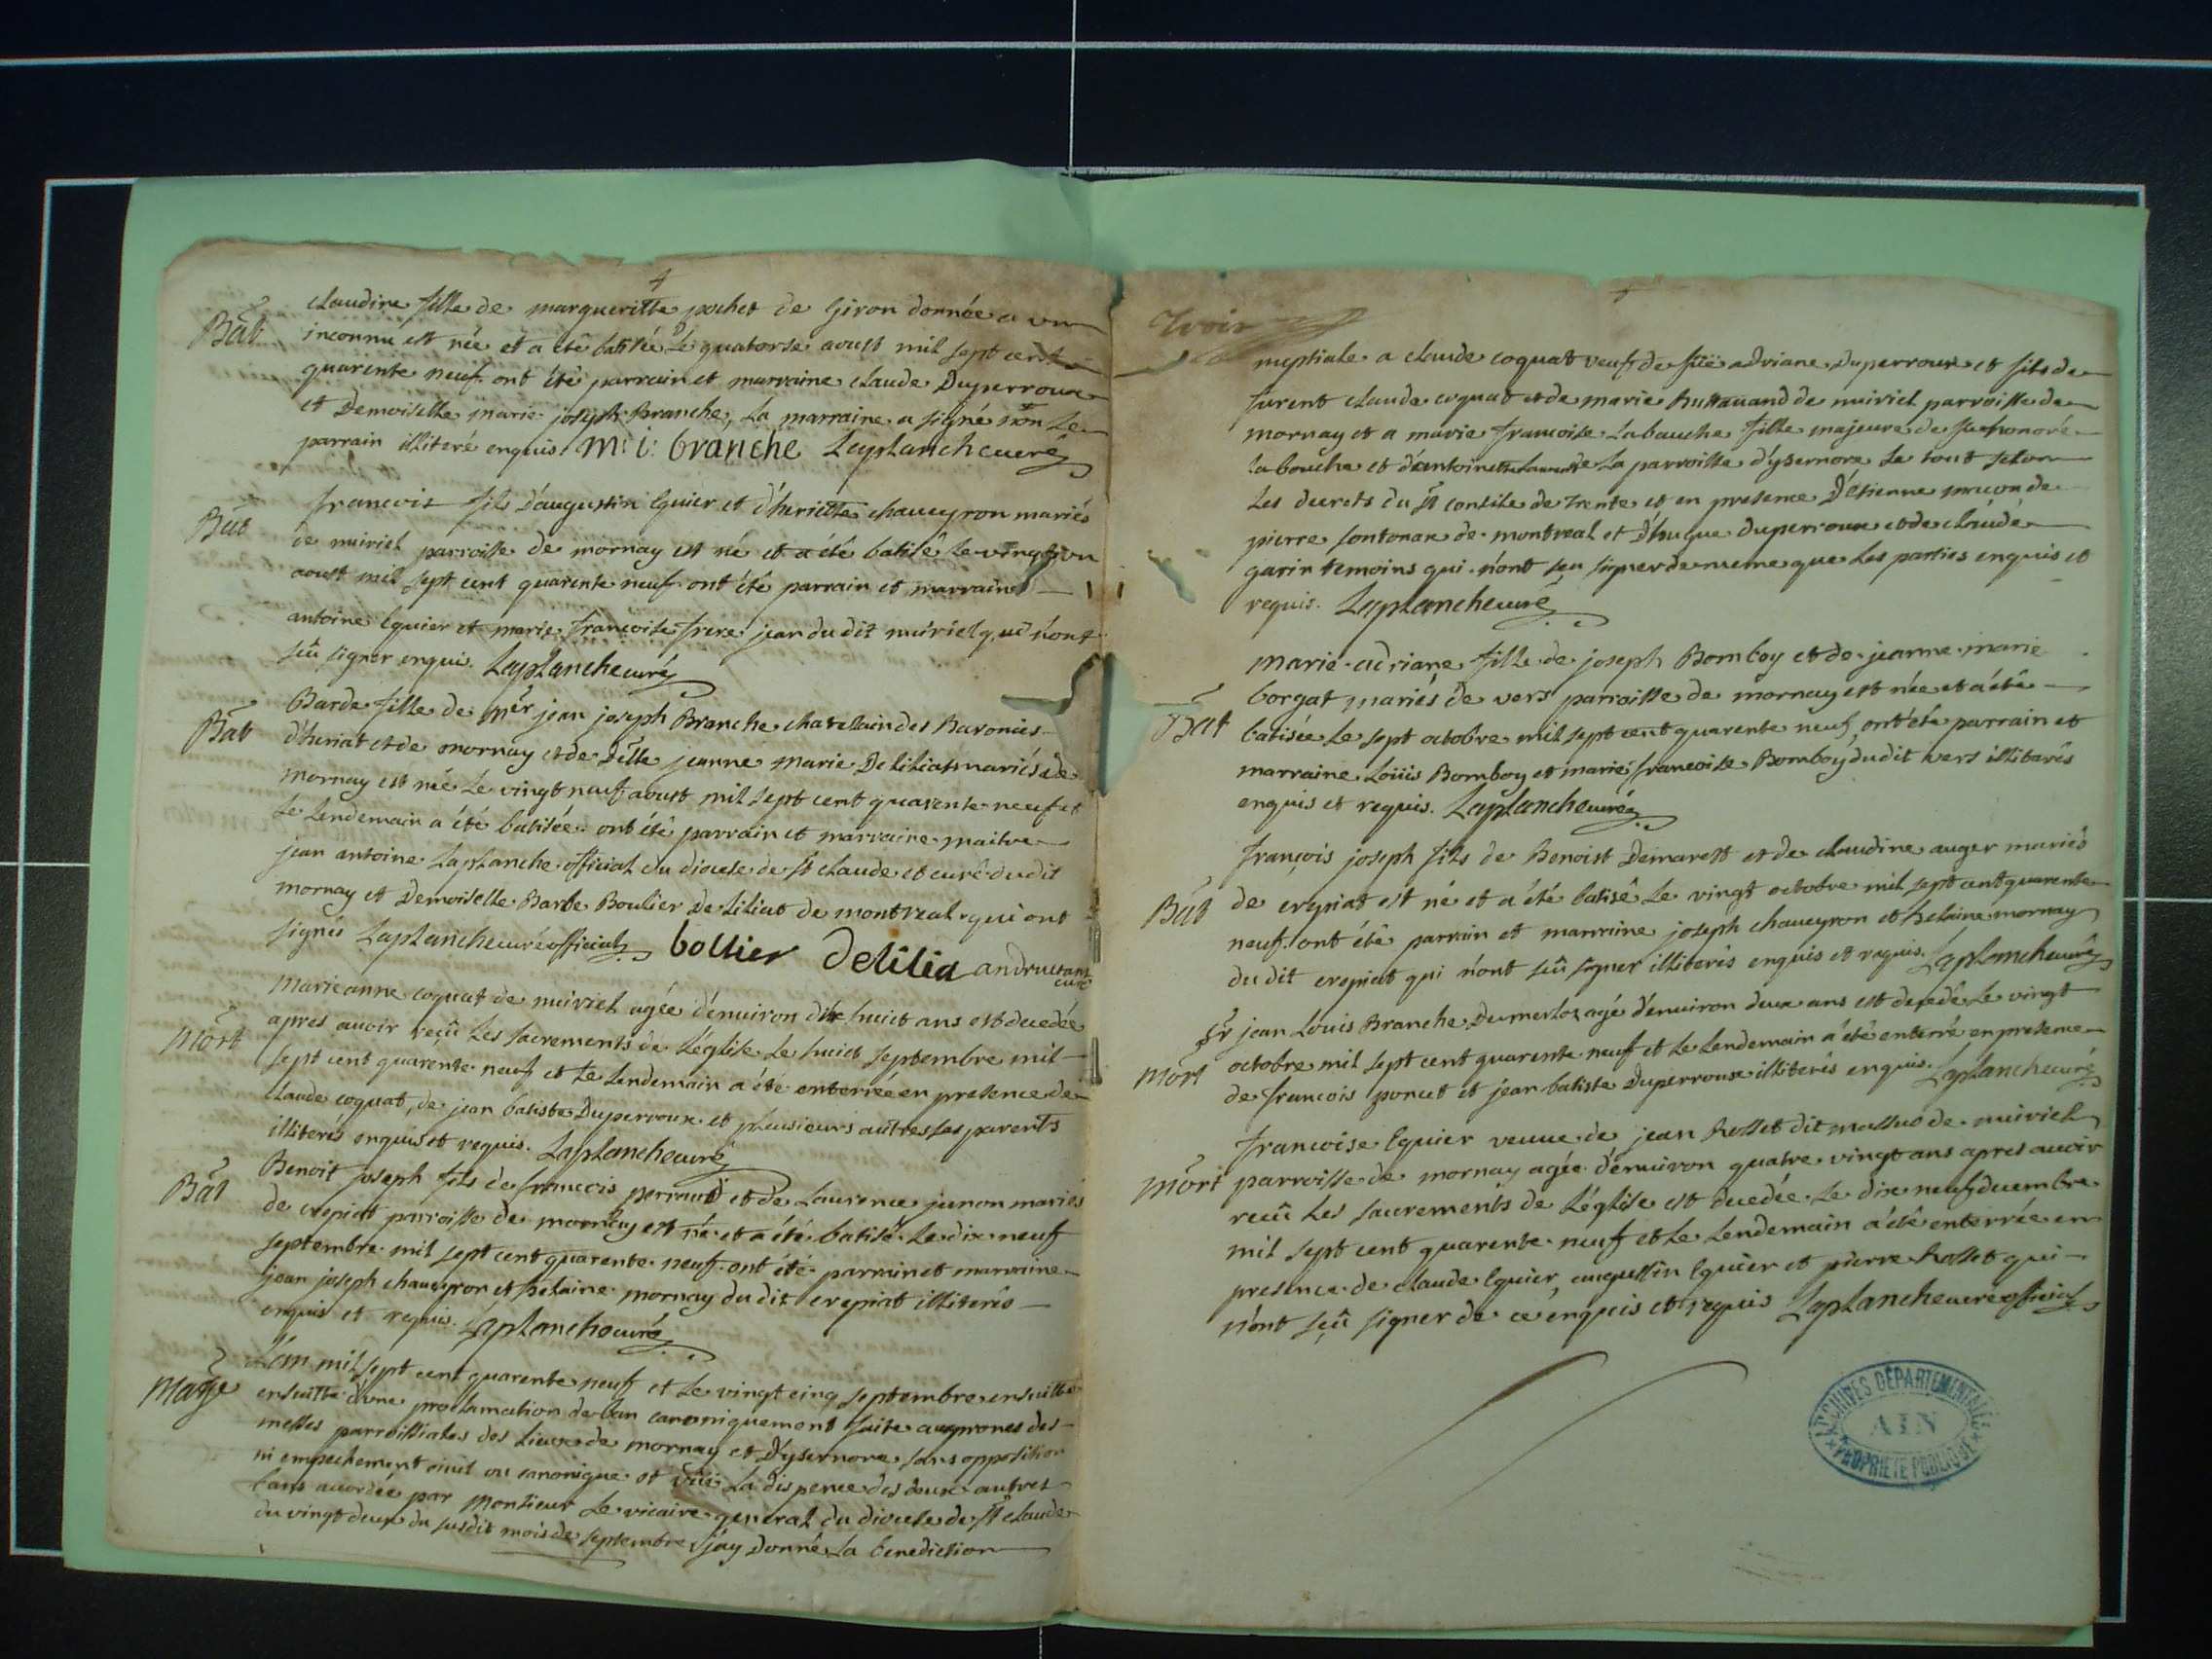 4
claudine fille de margueritte pochet de Giron donnée a un
Bat
inconnu est née et a été batisée le quatorse aoust mil sept cent
quarente neuf. ont été parrain et marraine claude Duperroux
et Demoiselle marie joseph Branche, la marraine a signé non le
parrain illiteré enquis. M: i: branche Laplanche curé
francois fils d'augustin Eguier et d'huriette chaveyron mariés
Bat
de nuiriel parroisse de mornay est né et a été batisé le vingt un
aoust mil sept cent quarente neuf. ont été parrain et marraine
antoine Eguier et marie francoise frere jean du dit nuiriel qui n'ont
sçû signer enqui. Laplanche curé
Barde fille de Mer jean joseph Branche chatellain des Baronies
Bat
d'heriat et de mornay et de Delle jeanne marie De liliat mariés de
mornay est née le vingt neuf aoust mil sept cent quarente neuf et
le lendemain a été batisée. ont été parrain et marraine maitre
jean antoine Laplanche official du diocese de st claude et curé du dit
mornay et Demoiselle Barbe Boulier De liliat de montreal qui ont
signés Laplanche curé official bollier Delilia andruetant
curé
Marie anne coquat de nuiriel agée d'enuiron dix huict ans est decedée
Mort
apres auoir reçû les sacrements de l'église le huict septembre mil
sept cent quarente neuf et le lendemain a été enterrée en presence de
claude coquat, de jean batiste Duperroux et plusieurs autres ses parents
illiterés enquis et requis. Laplanche curé
Benoit joseph fils de francois perraud et de Laurence junon mariés
Bat
de crepiat parroisse de mornay est né et a été batisé le dix neuf
septembre mil sept cent quarente neuf. ont été parrain et marraine
jean joseph chaveyron et helaine mornay du dit crepiat illiterés
enquis et requis. Laplanche curé
L'an mil sept cent quarente neuf et le vingt cinq septembre ensuitte
Mage
ensuitte d'une proclamation de ban canoniquement faite aux prones des
messes parroissiales des lieux de mornay et d'ysernore sans opposition
ni empechement ciuil ou canonique et vûë la dispence des deux autres
bans accordée par monsieur le vicaire general du diocese de st claude
du vingt deux du susdit mois de septembre j'ay donné la benediction
5
nuptiale a claude coquat veuf de fûë adriane Duperroux et fils de
furent claude coquat et de marie Ruttauand de nuiriel parroisse de
mornay et a marie francoise Labauche fille majeure de fû honoré
la bouche et d'antoinette de la parroisse d'ysernore le tout selon
les decrets du st concile de trente et en presence D'etienne maçon de
pierre sontonax de montreal et d'hugue duperroux et de claude
garin temoins qui n'ont sçu signer de meme que les parties enquis et
requis. Laplanche curé
marie adriane fille de joseph Bomboy et de jeanne marie
borgat mariés de vers parroisse de mornay est née et a été
Bat
batisée le sept octobre mil sept cent quarente neuf, ont été parrain et
marraine Loüis Bomboy et marie francoise Bomboy du dit vers illiterés
enquis et requis. Laplanche curé
françois joseph fils de Benoist Demarest et de claudine auger mariés
Bat
de crepiat est né et a été batisé le vingt octobre mil sept cent quarente
neuf. ont été parrain et marraine joseph chaveyron et helaine mornay
du dit crepiat qui n'ont sçû signer illiterés enquis et requis. Laplanche curé
Sr jean Louis Branche Dumerloz agé d'enuiron deux ans est decedé le vingt
Mort
octobre mil sept cent quarente neuf et le lendemain a été enterré en presence
de francois poncet et jean batiste Duperroux illiterés enquis. Laplanche curé
francoise Eguier veuue de jean Rosset dit massuo de nuiriel
Mort
parroisse de mornay agée d'enuiron quatre vingt ans apres auoir
reçû les sacrements de l'église est decedée le dix neuf decembre
mil sept cent quarente neuf et le lendemain a été enterrée en
presence de claude Eguier, augustin Eguier et pierre Rosset qui
n'ont sçû signer de ce enquis et requis Laplanche curé official
ARCHIVES DÉPARTEMENTALES
AIN
PROPRIÉTÉ PUBLIQUE